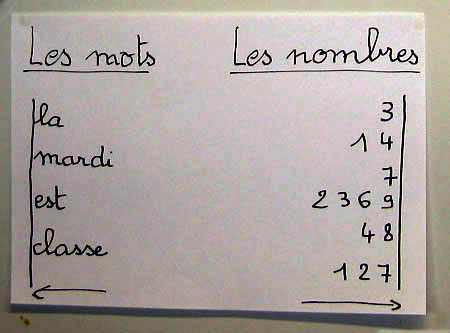 Les mots
la
mardi
est
classe
Les nombres
3
14
7
2369
48
127